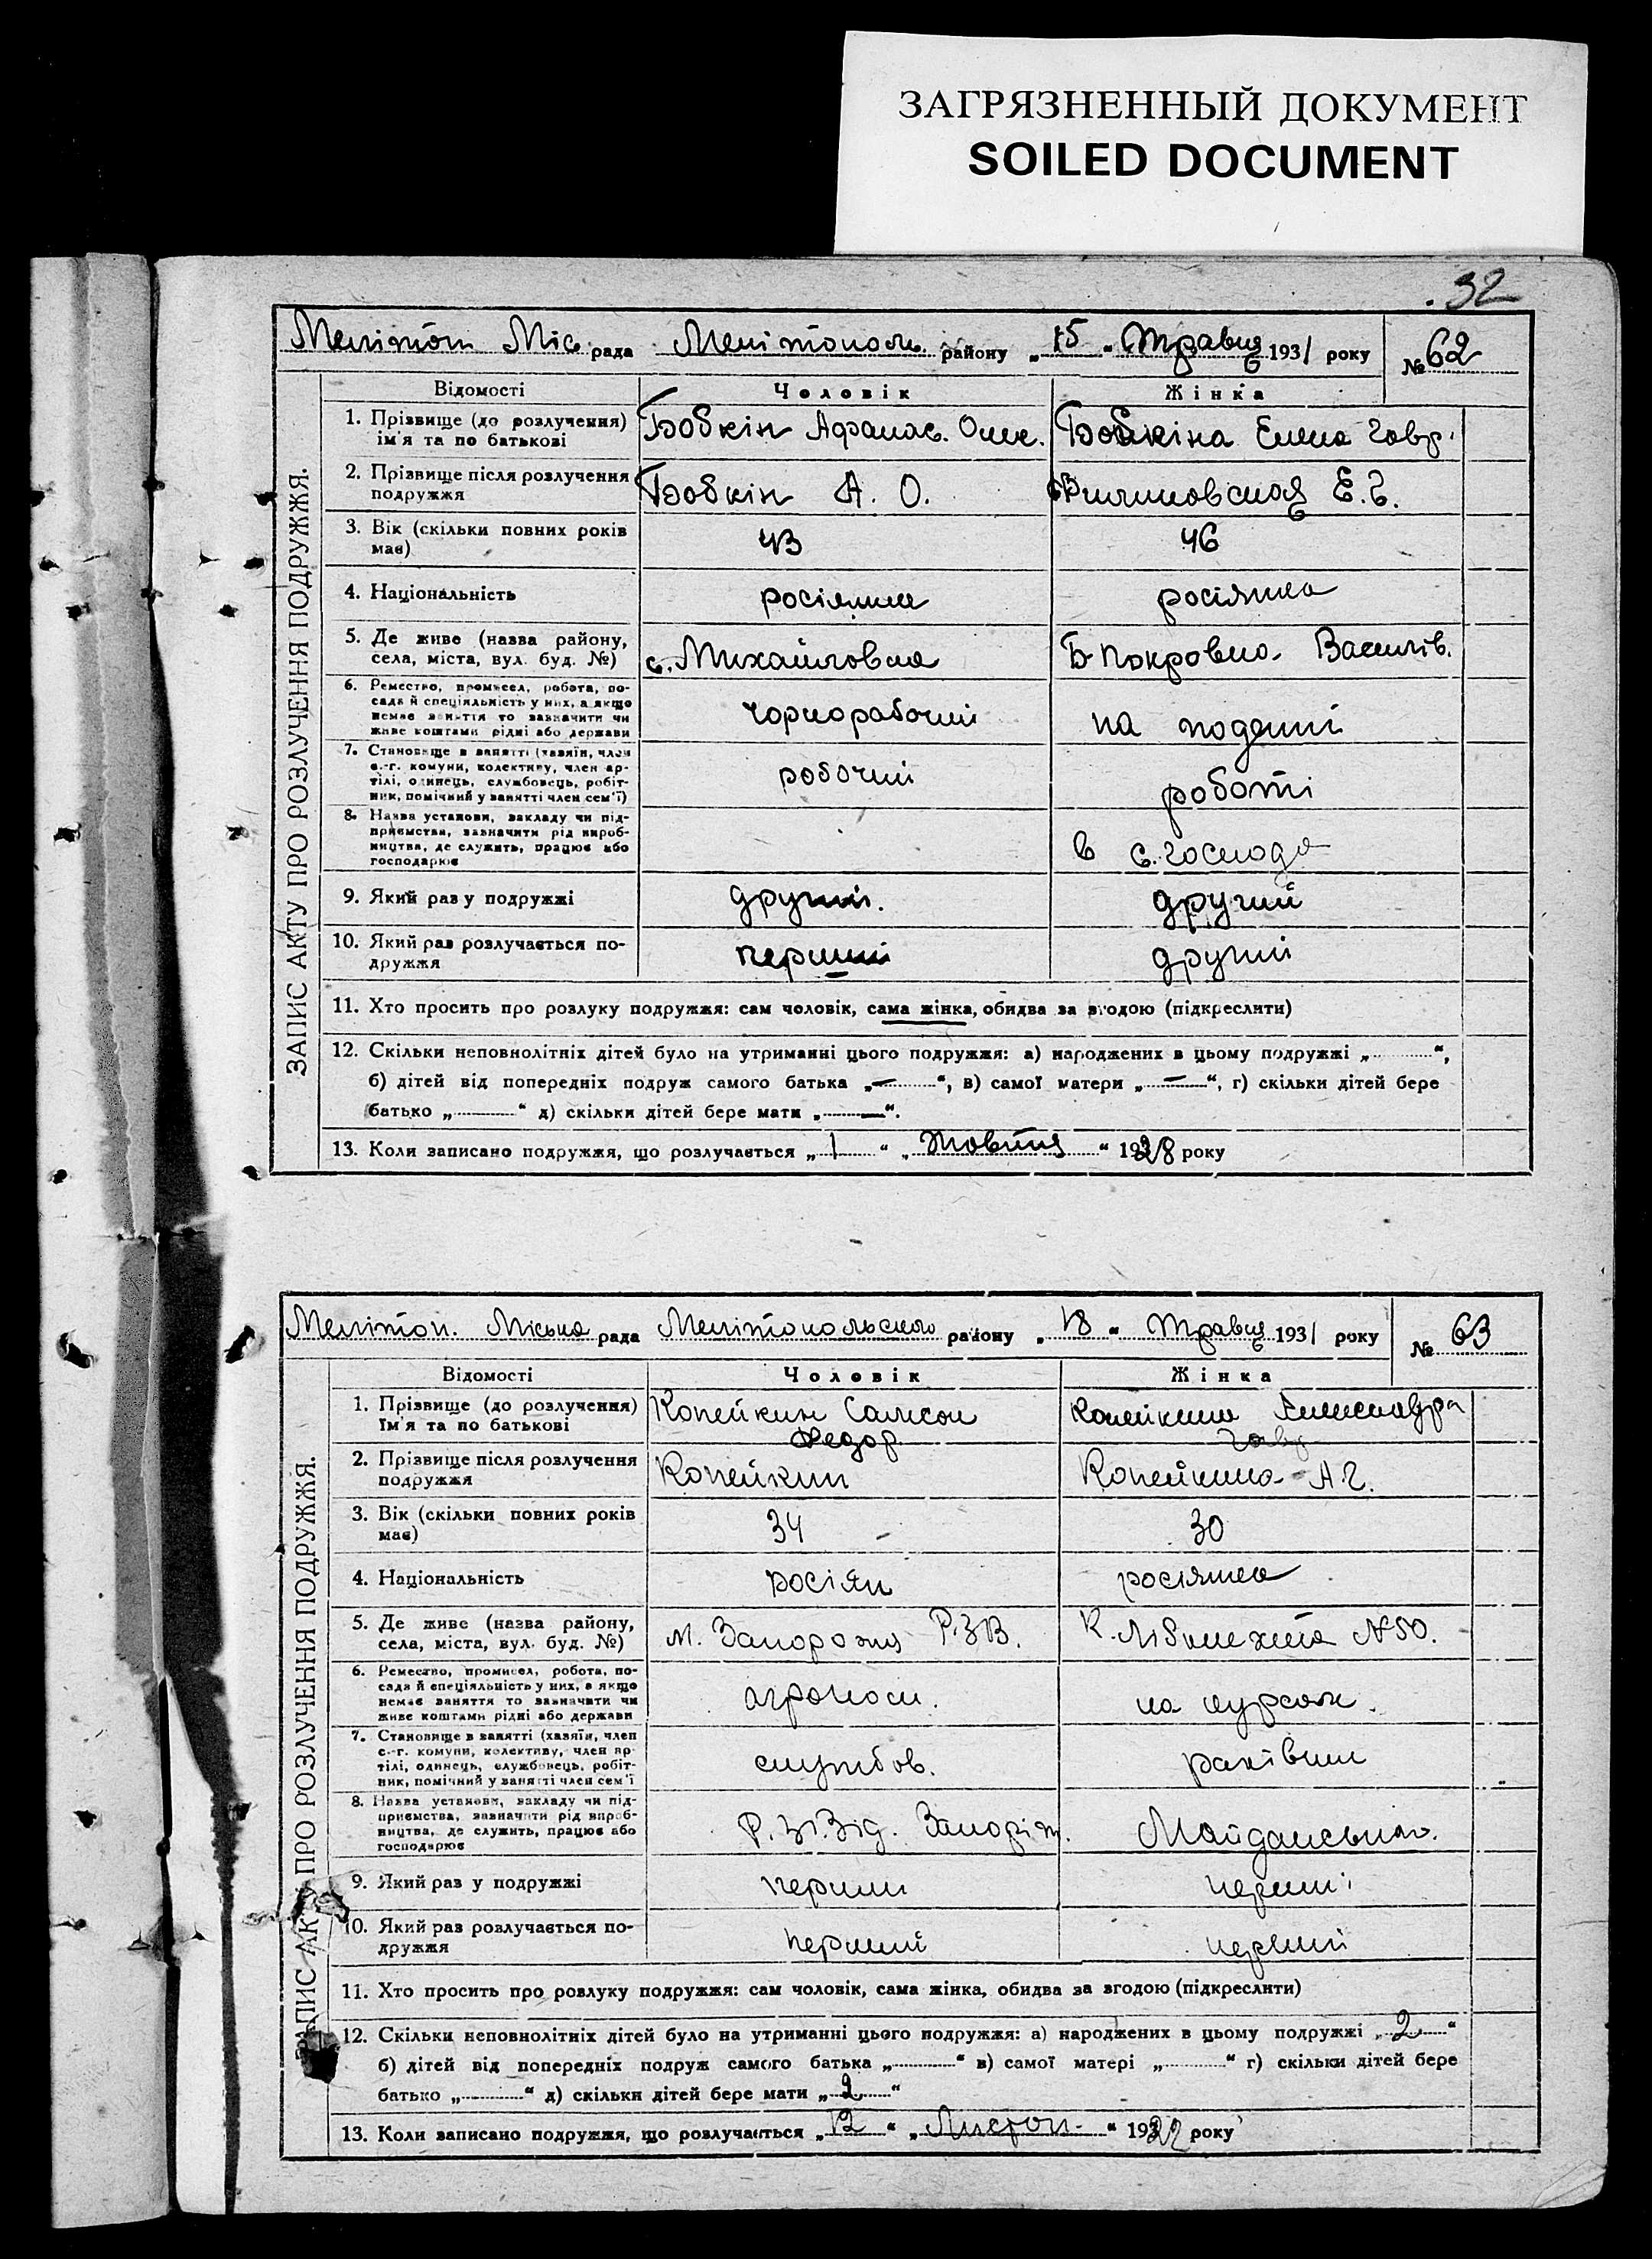 ЗАГРЯЗНЕННЫЙ ДОКУМЕНТ
SOILED DOCUMENT
32
ЗАПИС АКТУ ПРО РОЗЛУЧЕННЯ ПОДРУЖЖЯ.
Меліт. Міс. рада Мелітополь. району „15“ Травня 1931 року №62
Відомості Чоловік Жінка
1. Прізвище (до розлучення) Бобкін Афанас. Бобкіна Елена Гавр.
ім'я та по батькові
2. Прізвище після розлучення Бобкін А. О. Е. Г.
подружжя
3. Вік (скільки повних років 43 46
має)
4. Національність росіянин росіянка
5. Де живе (назва району, с. Михайловка Б-Покровка Василів.
села, міста, вул. буд. №)
6. Ремество, промисел, робота, по- чорнорабочий на поденні
сада й спеціяльність у них, а якщо
немає заняття то зазначити чи
живе коштами рідні або держави
7. Становище в занятті (хазяїн, член робочий роботі
с.-г. комуни, колективу, член ар-
тілі, одинець, службовець, робіт-
ник, помічний у занятті член сем'ї)
8. Назва установи, закладу чи під- в с. господ
приємства, зазначити рід вироб-
ництва, де служить, працює або
господарює
9. Який раз у подружжі другий. другий
10. Який раз розлучається по- перший другий
дружжя
11. Хто просить про розлуку подружжя: сам чоловік, сама жінка, обидва за згодою (підкреслити)
12. Скільки неповнолітніх дітей було на утриманні цього подружжя: а) народжених в цьому подружжі „ “,
б) дітей від попередніх подруж самого батька „—“, в) самої матери „—“, г) скільки дітей бере
батько „ “ д) скільки дітей бере мати „—“.
13. Коли записано подружжя, що розлучається „1“ „Жовтня“ 1928 року
ЗАПИС АКТУ ПРО РОЗЛУЧЕННЯ ПОДРУЖЖЯ.
Мелітоп. Міська рада Мелітопольського району „18“ Травня 1931 року № 63
Відомості Чоловік Жінка
1. Прізвище (до розлучення) Копейкин Самсон Копейкина Александра
їм'я та по батькові Федор. Гавр
2. Прізвище після розлучення Копейкин Копейкина А Г.
подружжя
3. Вік (скільки повних років 34 30
має)
4. Національність росіян росіянка
5. Де живе (назва району, м. Запорожя Р.З.В. К. Лібкнехта №50.
села, міста, вул. буд. №)
6. Ремество, промисел, робота, по- агроном. на курсах.
сада й спеціяльність у них, а якщо
немає заняття то зазначити чи
живе коштами рідні або держави
7. Становище в занятті (хазяїн, член службов. рахівни
с.-г. комуни, колективу, член ар-
тілі, одинець, службовець, робіт-
ник, помічний у занятті член сем'ї
8. Назва установи, закладу чи під- Р. Зід. Запоріж.
приємства, зазначити рід вироб-
ництва, де служить, працює або
господарює
9. Який раз у подружжі перший перший
10. Який раз розлучається по- перший перший
дружжя
11. Хто просить про розлуку подружжя: сам чоловік, сама жінка, обидва за згодою (підкреслити)
12. Скільки неповнолітніх дітей було на утриманні цього подружжя: а) народжених в цьому подружжі „2“
б) дітей від попередніх подруж самого батька „ “ в) самої матері „ “ г) скільки дітей бере
батько „ “ д) скільки дітей бере мати „2“
13. Коли записано подружжя, що розлучається „12“ „Листоп.“ 1922 року